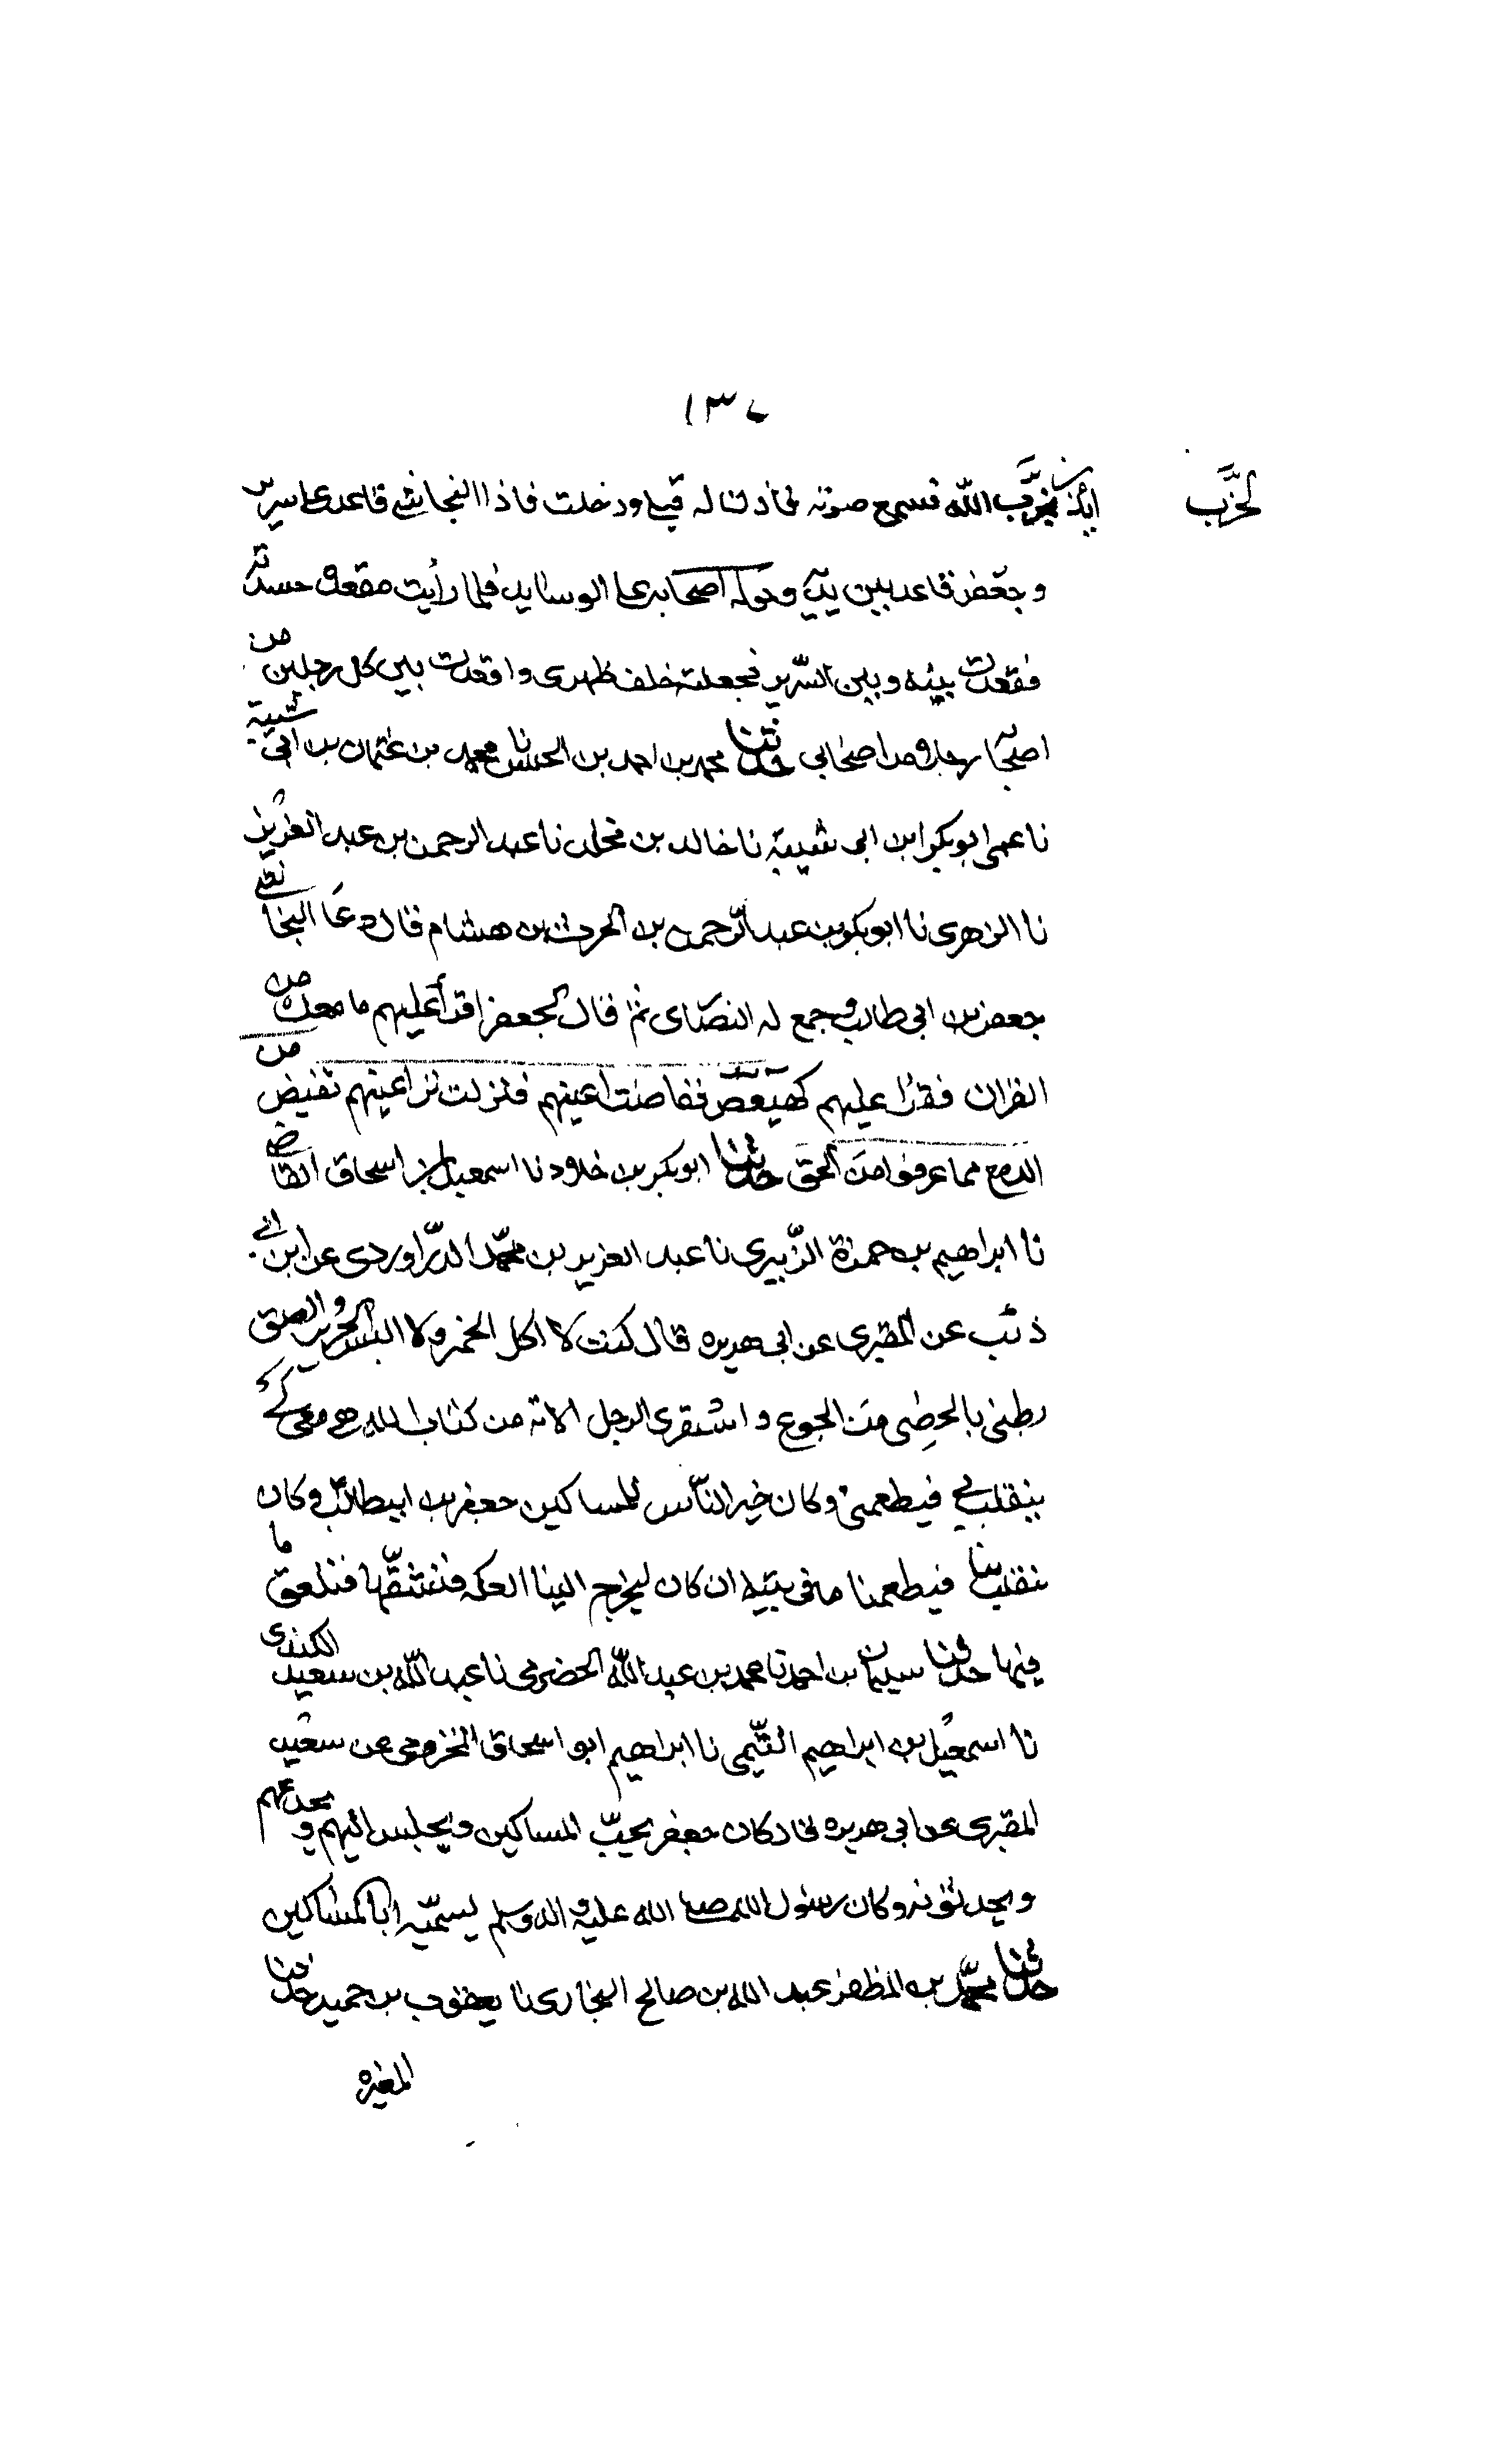 ١٣٧
لحزب
ايذن لحزب الله فسمع صوته فاذن له قبلي ودخلت فاذا النجاشي قاعد على سرير
وجعفر قاعد بين يديه وحوله اصحابه على الوسايد فلما رأيت مقعده حسدته
فقعدت بينه وبين السرير فجعلته خلف ظهرى واقعدت بين كل رجلين من
اصحابه رجلا من اصحابي حدثنا محمد بن احمد بن الحسن نا محمد بن عثمان بن ابى شيبة
نا عمى ابو بكر ابن ابى شيبة نا خالد بن مخلد نا عبد الرحمن بن عبد العزيز
نا الزهرى نا ابو بكر بن عبد الرحمن بن الحرث بن هشام قال دعا النجاشي
جعفر بن ابى طالب وجمع له النصارى ثم قال لجعفر اقرأ عليهم ما معك من
القران فقرا عليهم كهيعص ففاضت اعينهم فنزلت ترى اعينهم تفيض من
الدمع مما عرفوا من الحق حدثنا ابو بكر بن خلاد نا اسمعيل بن اسحاق القاضي
نا ابراهيم بن حمزة الزبيرى نا عبد العزيز بن محمد الدراوردى عن ابن ابي
ذئب عن المقبرى عن ابى هريره قال كنت لا اكل الخمير ولا البس الحرير والصق
بطنى بالحصى من الجوع واستقرى الرجل الاية من كتاب الله هي معي كي
ينقلب بي فيطعمني وكان خير الناس للمساكين جعفر بن ابيطالب وكان
ينقلب بنا فيطعمنا ما فى بيته ان كان ليخرج الينا العكه فنشقها فنلعق ما
فيها حدثنا سليمان بن احمد نا محمد بن عبد الله الحضرمى نا عبد الله بن سعيد الكندى
نا اسمعيل بن ابراهيم التيمى نا ابراهيم ابو اسحاق المخزومى عن سعيد
المقبرى عن ابى هريره قال كان جعفر يحب المساكين ويجلس اليهم و يحدثهم
ويحدثونه وكان رسول الله صلى الله عليه واله وسلم يسميه ابا المساكين
حدثنا محمد بن المظفر عبد الله بن صالح البخارى نا يعقوب بن حميد حدثنا
المغيره